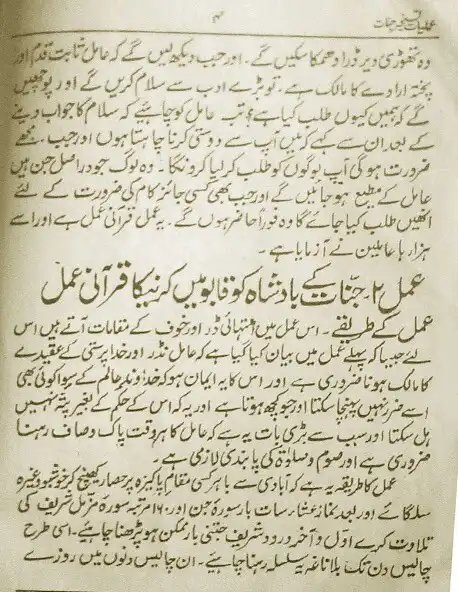 عملیات تسخیر جنات
۴
وہ تھوڑی دیر ڈرا دھمکا سکیں گے۔ اور جب دیکھ لیں گے کہ عامل ثابت قدم اور
پختہ ارادے کا مالک ہے۔ تو بڑے ادب سے سلام کریں گے اور پوچھیں
گے کہ ہمیں کیوں طلب کیا ہے؟ تب عامل کو چاہیئے کہ سلام کا جواب دینے
کے بعد ان سے کہے کہ میں آپ سے دوستی کرنا چاہتا ہوں اور جب مجھے
ضرورت ہوگی آپ لوگوں کو طلب کر لیا کرونگا۔ وہ لوگ جو دراصل جن ہیں
عامل کے مطیع ہو جائیں گے اور جب بھی کسی جائز کام کی ضرورت کے لئے
انھیں طلب کیا جائے گا وہ فوراً حاضر ہوں گے۔ یہ عمل قرآنی عمل ہے اور اسے
ہزارہا عاملین نے آزمایا ہے۔
عمل ۲۔ جنّات کے بادشاہ کو قابو میں کرنیکا قرآنی عمل
عمل کے طریقے۔ اس عمل میں انتہائی ڈر اور خوف کے مقامات آتے ہیں اس
لئے جیسا کہ پہلے عمل میں بیان کیا گیا ہے کہ عامل نڈر اور خدا پرستی کے عقیدے
کا مالک ہونا ضروری ہے اور اس کا یہ ایمان ہو کہ خداوند عالم کے سوا کوئی بھی
اسے ضرر نہیں پہنچا سکتا اور جو کچھ ہوتا ہے اور یہ کہ اس کے حکم کے بغیر پتہ نہیں
ہل سکتا اور سب سے بڑی بات یہ ہے کہ عامل کا ہر وقت پاک و صاف رہنا
ضروری ہے اور صوم و صلوٰۃ کی پابندی لازمی ہے۔
عمل کا طریقہ یہ ہے کہ آبادی سے باہر کسی مقام پاکیزہ پر حصار کھینچ کر خوشبو وغیرہ
سلگائے اور بعد نماز عشا سات بار سورۂ جن اور ۱۶ مرتبہ سورۂ مزمل شریف کی
تلاوت کرے اول و آخر درود شریف جتنی بار ممکن ہو پڑھنا چاہیے۔ اسی طرح
چالیس دن تک بلا ناغہ یہ سلسلہ رہنا چاہیے۔ ان چالیس دنوں میں روزے